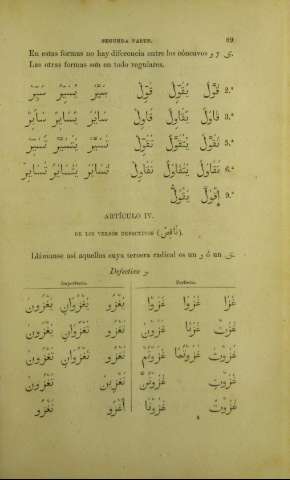 SEGUNDA PARTE. 69
En estas formas no hay diferencia entre los cóncavos و y ى.
Las otras formas son en todo regulares.
2.ª قَوَّلَ يُقَوِّلُ قَوِّلْ سَيَّرَ يُسَيِّرُ سَيِّرْ
3.ª قَاوَلَ يُقَاوِلُ قَاوِلْ سَايَرَ يُسَايِرُ سَايِرْ
5.ª تَقَوَّلَ يَتَقَوَّلُ تَقَوَّلْ تَسَيَّرَ يَتَسَيَّرُ تَسَيَّرْ
6.ª تَقَاوَلَ يَتَقَاوَلُ تَقَاوَلْ تَسَايَرَ يَتَسَايَرُ تَسَايَرْ
9.ª إِقْوَلَّ يَقْوَلُّ
ARTÍCULO IV.
DE LOS VERBOS DEFECTIVOS (نَاقِص).
Llámanse así aquellos cuya tercera radical es un و ó un ى.
Defectivo و
Imperfecto. Perfecto.
غَزَا غَزَوَا غَزَوْا يَغْزُو يَغْزُوَانِ يَغْزُونَ
غَزَتْ غَزَتَا غَزَوْنَ تَغْزُو تَغْزُوَانِ يَغْزُونَ
غَزَوْتَ غَزَوْتُمَا غَزَوْتُمْ تَغْزُو تَغْزُوَانِ تَغْزُونَ
غَزَوْتِ غَزَوْتُنَّ تَغْزِينَ تَغْزُونَ
غَزَوْتُ غَزَوْنَا أَغْزُو نَغْزُو